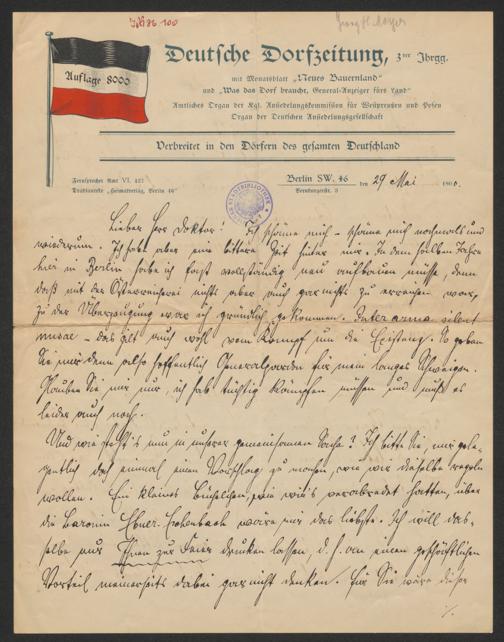 Georg H. Meyer
Auflage 8000
Deutsche Dorfzeitung, 3ter Jhrgg.
mit Monatsblatt „Neues Bauernland“
und „Was das Dorf braucht, General-Anzeiger fürs Land“
Amtliches Organ der Kgl. Ansiedelungskommission für Westpreußen und Posen
Organ der Deutschen Ansiedelungsgesellschaft
Verbreitet in den Dörfern des gesamten Deutschland
Fernsprecher Amt VI.
Drahtworte „Heimatverlag, Berlin 46“
Berlin SW. 46 den 29 Mai 190
Bernburgerstr. 3
Lieber Herr Doktor! Ich schäme mich – schäme mich nochmals und
wiederum. Ich habe aber eine bittere Zeit hinter mir. In dem halben Jahre
hier in Berlin habe ich fast vollständig neu aufbauen müssen, denn
daß mit der nichts aber auch gar nichts zu erreichen war,
zu der Überzeugung war ich gründlich gekommen. Inter arma silent
musae – das gilt auch wohl vom Kampf um die Existenz. So geben
Sie mir denn also hoffentlich Generalpardon für mein langes Schweigen.
Glauben Sie mir nur, ich hab tüchtig kämpfen müssen und muß es
leider auch noch.
Und wie steht's nun in unserer gemeinsamen Sache? Ich bitte Sie, mir gele-
gentlich doch einmal einen Vorschlag zu machen, wie wir dieselbe regeln
wollen. Ein kleines Büchelchen, wie wir's verabredet hatten, über
die Baronin Ebner-Eschenbach wäre mir das liebste. Ich will das-
selbe nur Ihnen zur Feier drucken lassen, d. h. an einen geschäftlichen
Vorteil meinerseits dabei gar nicht denken. Für Sie wäre diese
./.